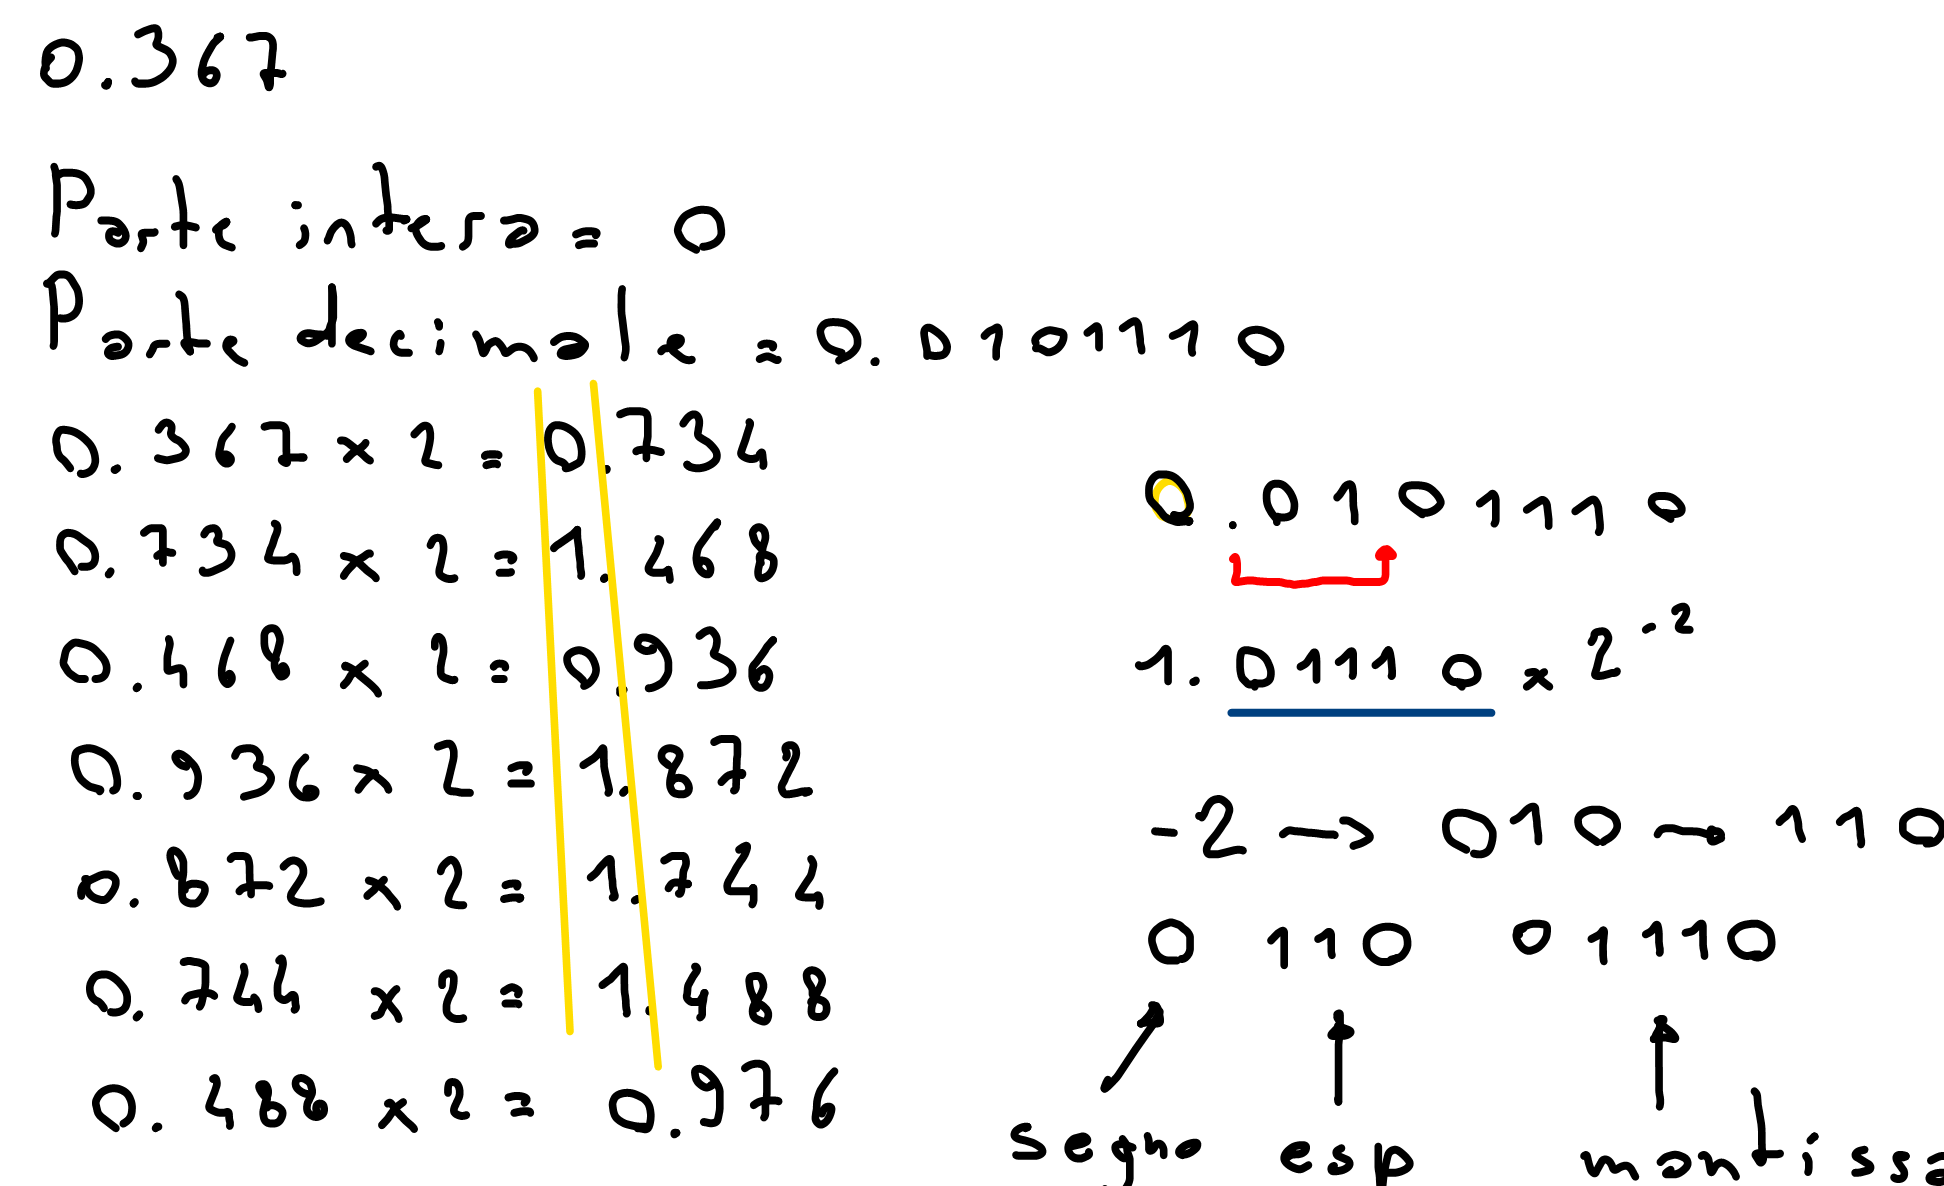 0.367
Parte intera = 0
Parte decimale = 0.0101110
0.367 x 2 = 0.734
0.734 x 2 = 1.468
0.468 x 2 = 0.936
0.936 x 2 = 1.872
0.872 x 2 = 1.744
0.744 x 2 = 1.488
0.488 x 2 = 0.976
0.0101110
1.01110 x 2⁻²
-2 → 010 → 110
0 110 01110
segno esp mantissa